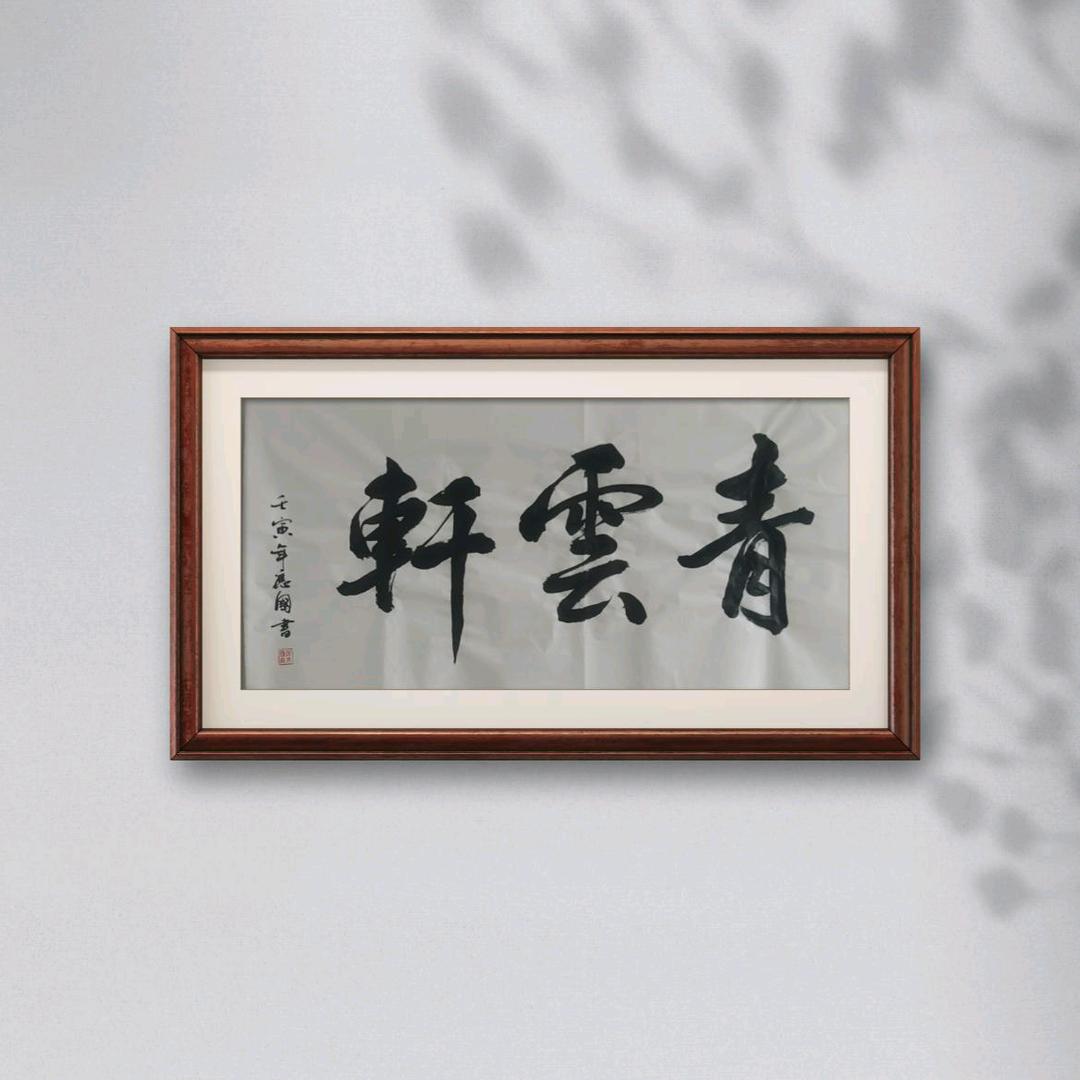 青雲軒
壬寅年應國書